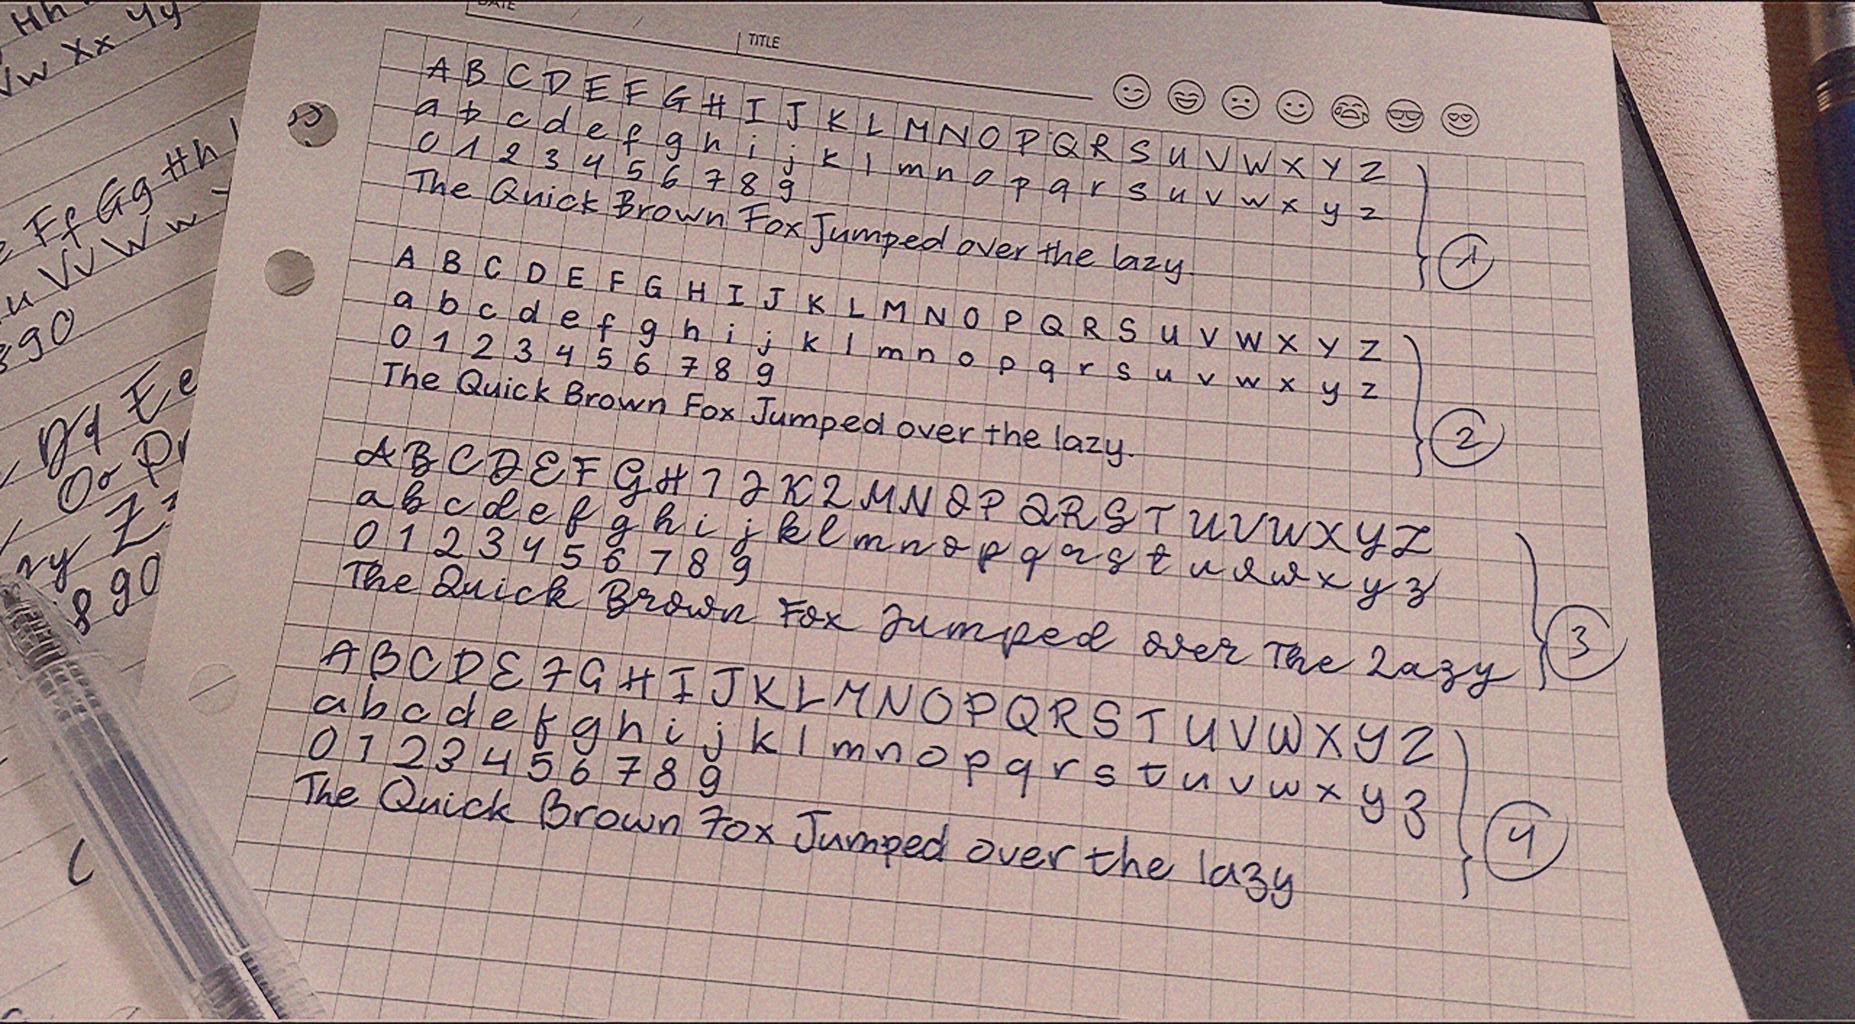 DATE / /
TITLE
A B C D E F G H I J K L M N O P Q R S U V W X Y Z
a b c d e f g h i j k l m n o p q r s u v w x y z
0 1 2 3 4 5 6 7 8 9
The Quick Brown Fox Jumped over the lazy.
1
A B C D E F G H I J K L M N O P Q R S U V W X Y Z
a b c d e f g h i j k l m n o p q r s u v w x y z
0 1 2 3 4 5 6 7 8 9
The Quick Brown Fox Jumped over the lazy.
2
A B C D E F G H I J K L M N O P Q R S T U V W X Y Z
a b c d e f g h i j k l m n o p q r s t u v w x y z
0 1 2 3 4 5 6 7 8 9
The Quick Brown Fox Jumped over The Lazy
3
A B C D E F G H I J K L M N O P Q R S T U V W X Y Z
a b c d e f g h i j k l m n o p q r s t u v w x y z
0 1 2 3 4 5 6 7 8 9
The Quick Brown Fox Jumped over the lazy
4
Hh
Yy
Vw Xx
Ff Gg Hh
u Vv Ww
890
Dd Ee
Oo Pp
890